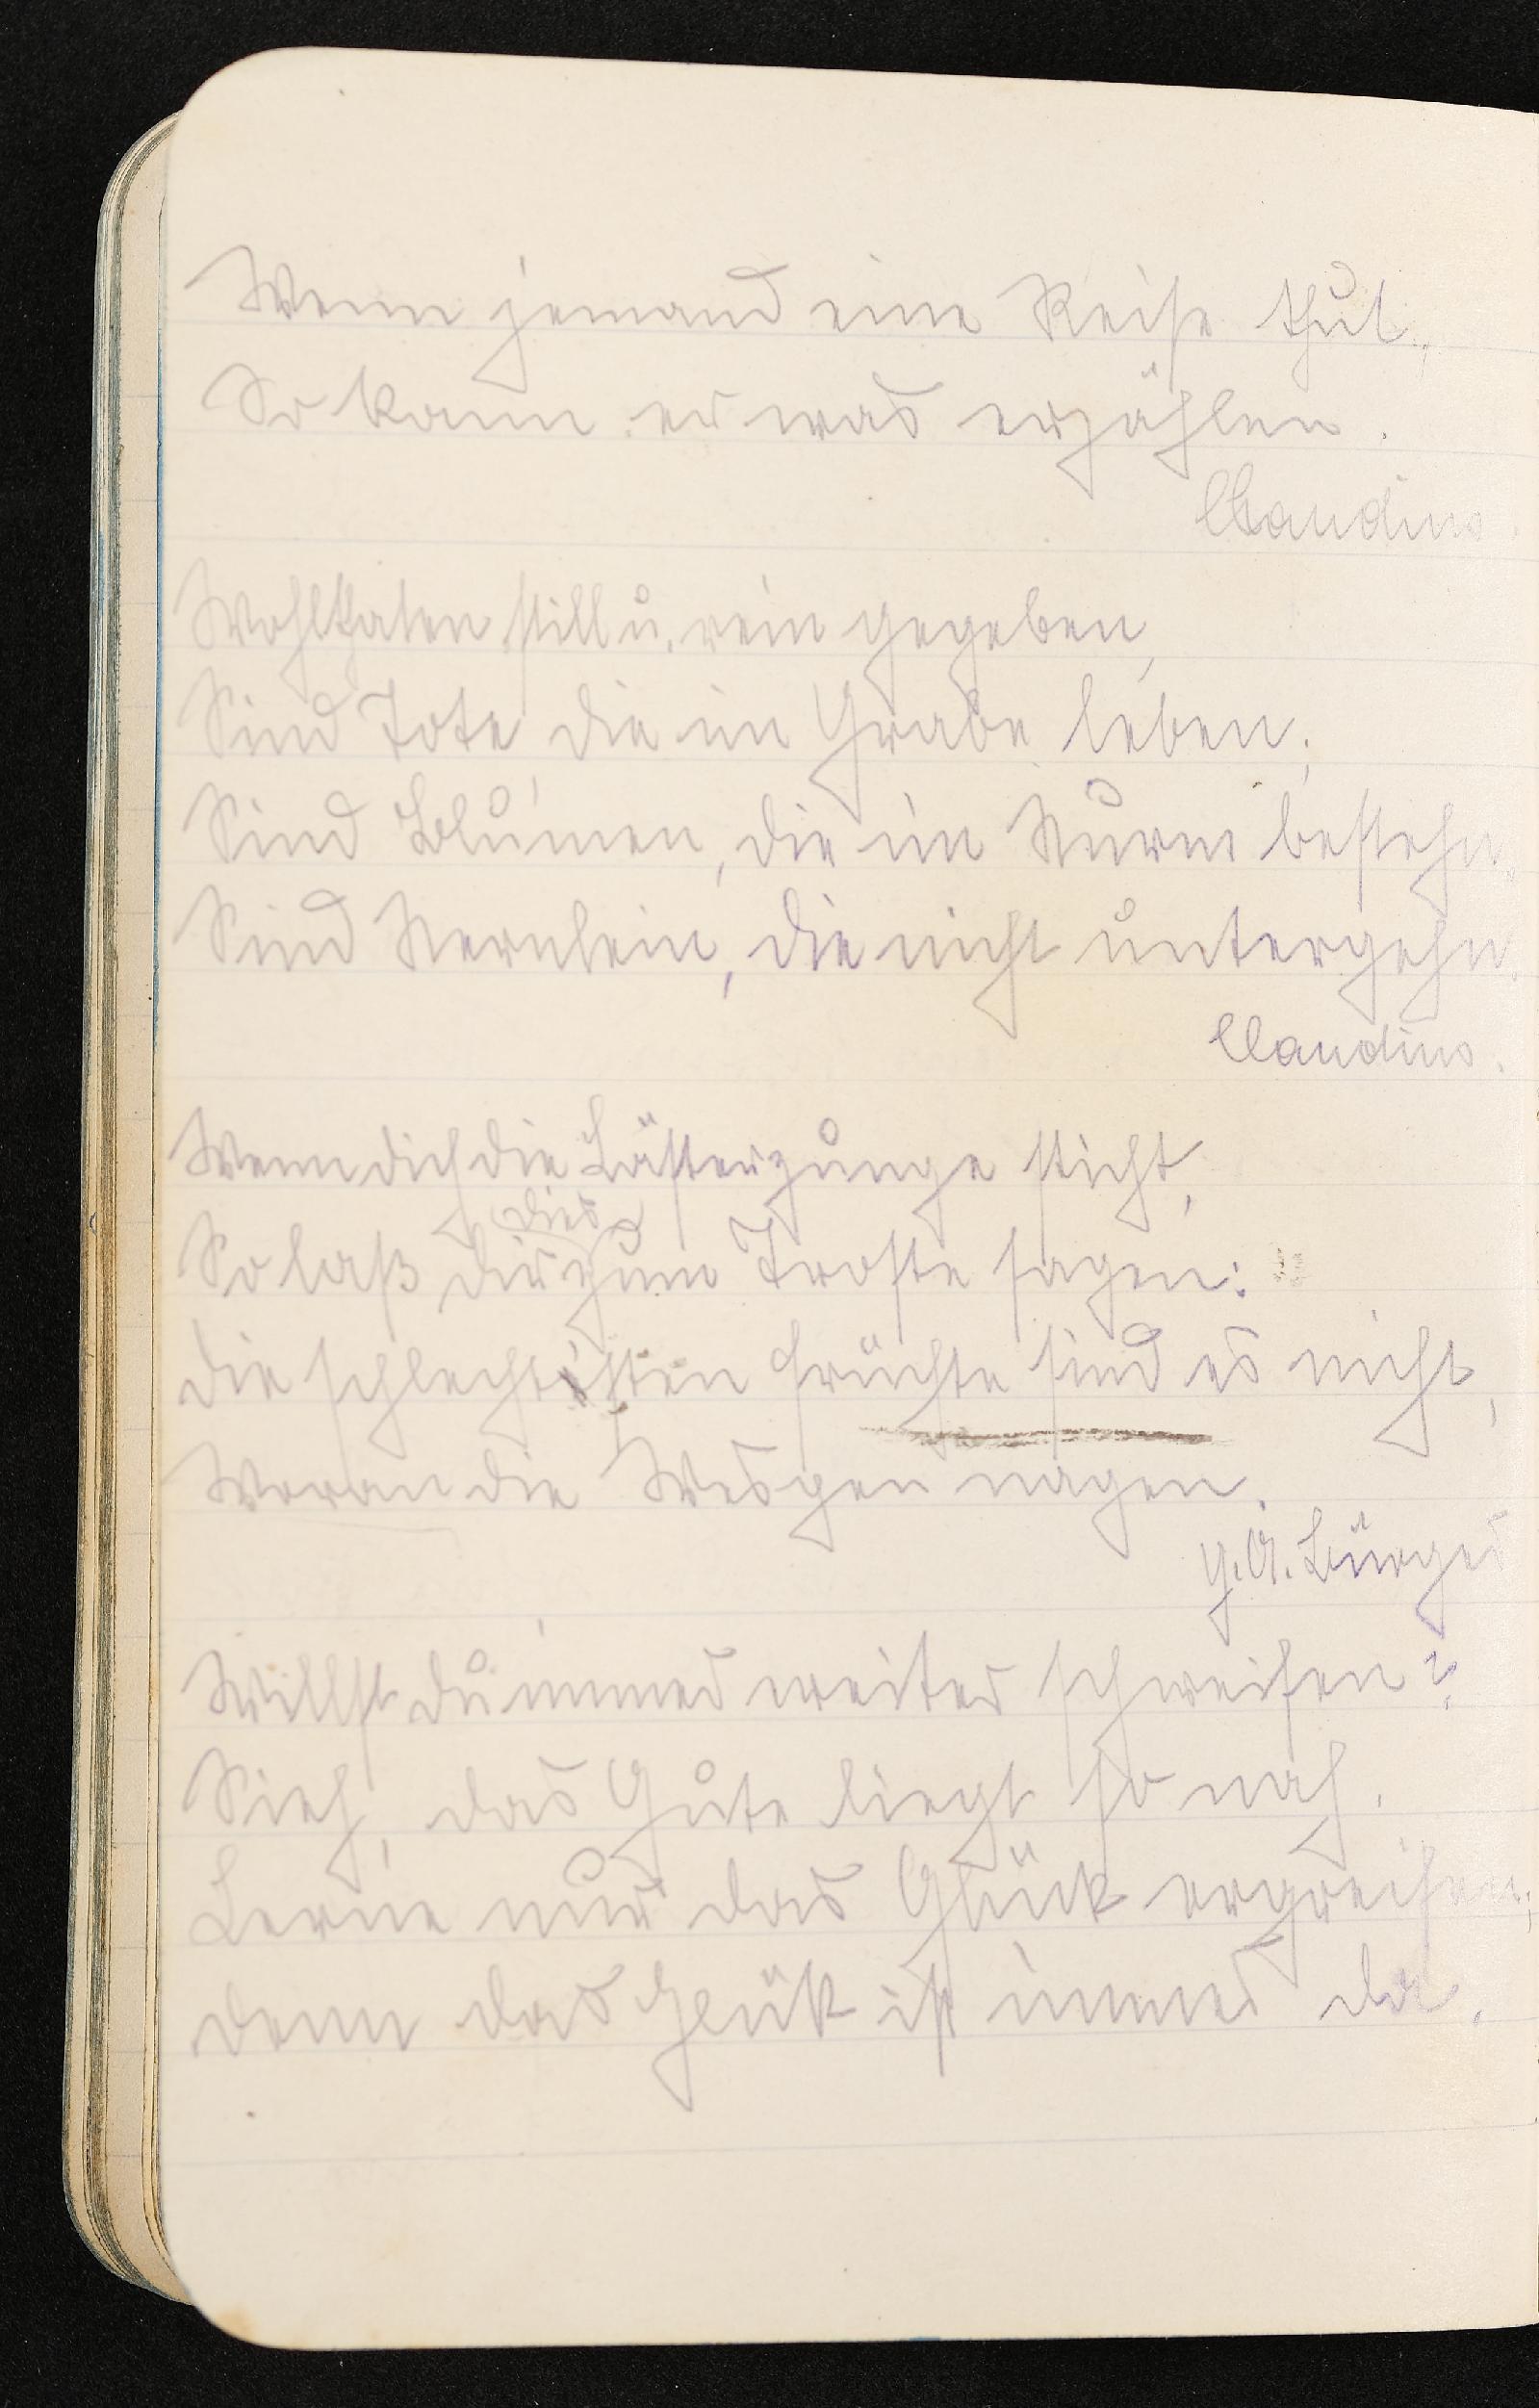 Wenn jemand eine Reise thut,
So kann er was erzählen.
Claudius.
Wohlthaten still u. rein gegeben,
Sind Tote die im Grabe leben;
Sind Blumen, die im Sturm bestehn,
Sind Sternlein, die nicht untergehn.
Claudius.
Wenn dich die Lästerzunge sticht,
dies
So laß dir zum Troste sagen:
Die schlechtsten Früchte sind es nicht,
Woran die Wespen nagen.
G. A. Bürger
Willst du immer weiter schweifen?
Sieh, das Gute liegt so nah.
Lerne nur das Glück ergreifen;
Denn das Glük ist immer da.